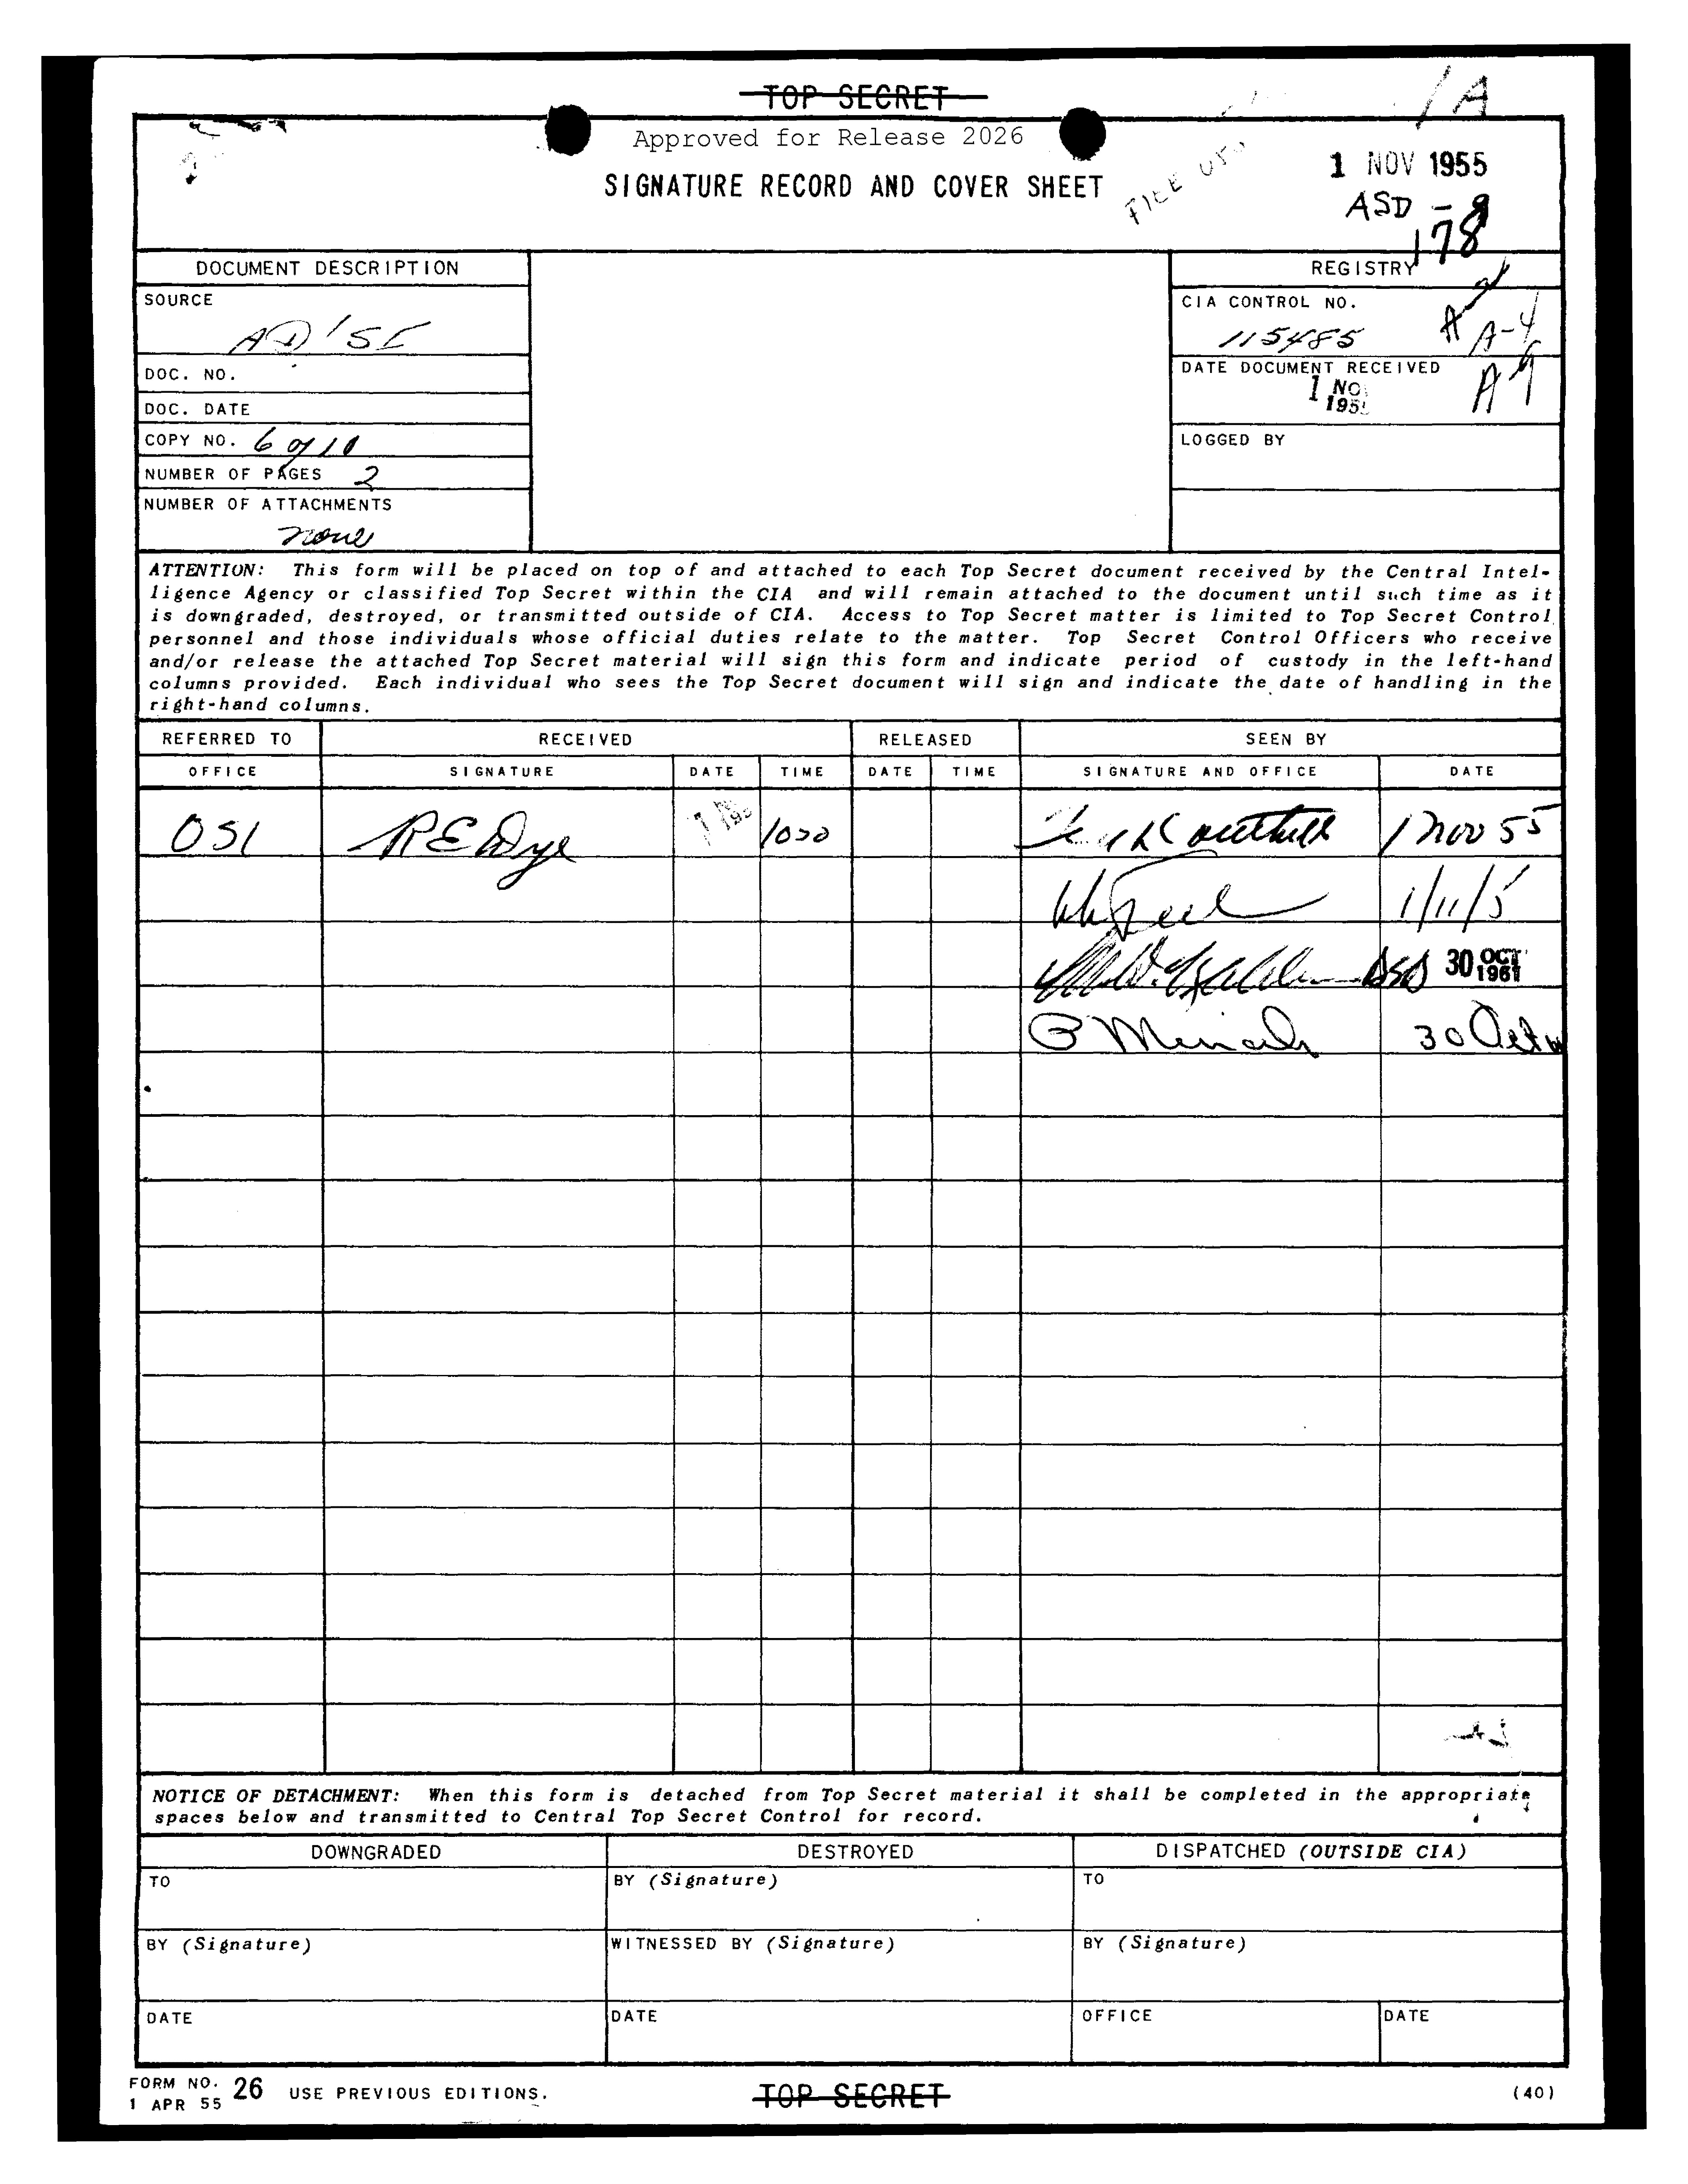 TOP SECRET
1A
Approved for Release 2026
SIGNATURE RECORD AND COVER SHEET
FILE
1 NOV 1955
ASD -
178
DOCUMENT DESCRIPTION
REGISTRY
SOURCE
AD/SI
CIA CONTROL NO.
115485
A-4
A9
DOC. NO.
DATE DOCUMENT RECEIVED
1 NO
195
DOC. DATE
COPY NO. 6 of 10
LOGGED BY
NUMBER OF PAGES 2
NUMBER OF ATTACHMENTS
none
ATTENTION: This form will be placed on top of and attached to each Top Secret document received by the Central Intel-
ligence Agency or classified Top Secret within the CIA and will remain attached to the document until such time as it
is downgraded, destroyed, or transmitted outside of CIA. Access to Top Secret matter is limited to Top Secret Control
personnel and those individuals whose official duties relate to the matter. Top Secret Control Officers who receive
and/or release the attached Top Secret material will sign this form and indicate period of custody in the left-hand
columns provided. Each individual who sees the Top Secret document will sign and indicate the date of handling in the
right-hand columns.
REFERRED TO RECEIVED RELEASED SEEN BY
OFFICE SIGNATURE DATE TIME DATE TIME SIGNATURE AND OFFICE DATE
OSI R E Dye 1 1000 1 Nov 55
1/11/5
30 OCT 1961
30 Oct
NOTICE OF DETACHMENT: When this form is detached from Top Secret material it shall be completed in the appropriate
spaces below and transmitted to Central Top Secret Control for record.
DOWNGRADED DESTROYED DISPATCHED (OUTSIDE CIA)
TO BY (Signature) TO
BY (Signature) WITNESSED BY (Signature) BY (Signature)
DATE DATE OFFICE DATE
FORM NO. 26 USE PREVIOUS EDITIONS.
1 APR 55
TOP SECRET
(40)